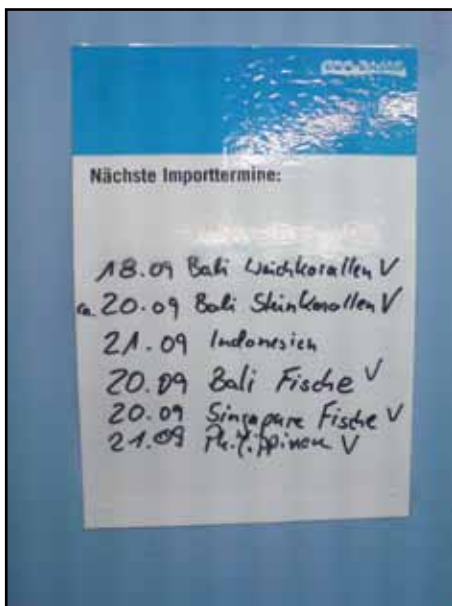 Nächste Importtermine:
18.09 Bali Weichkorallen V
ca. 20.09 Bali Steinkorallen V
21.09 Indonesien
20.09 Bali Fische V
20.09 Singapure Fische V
21.09 Philippinen V